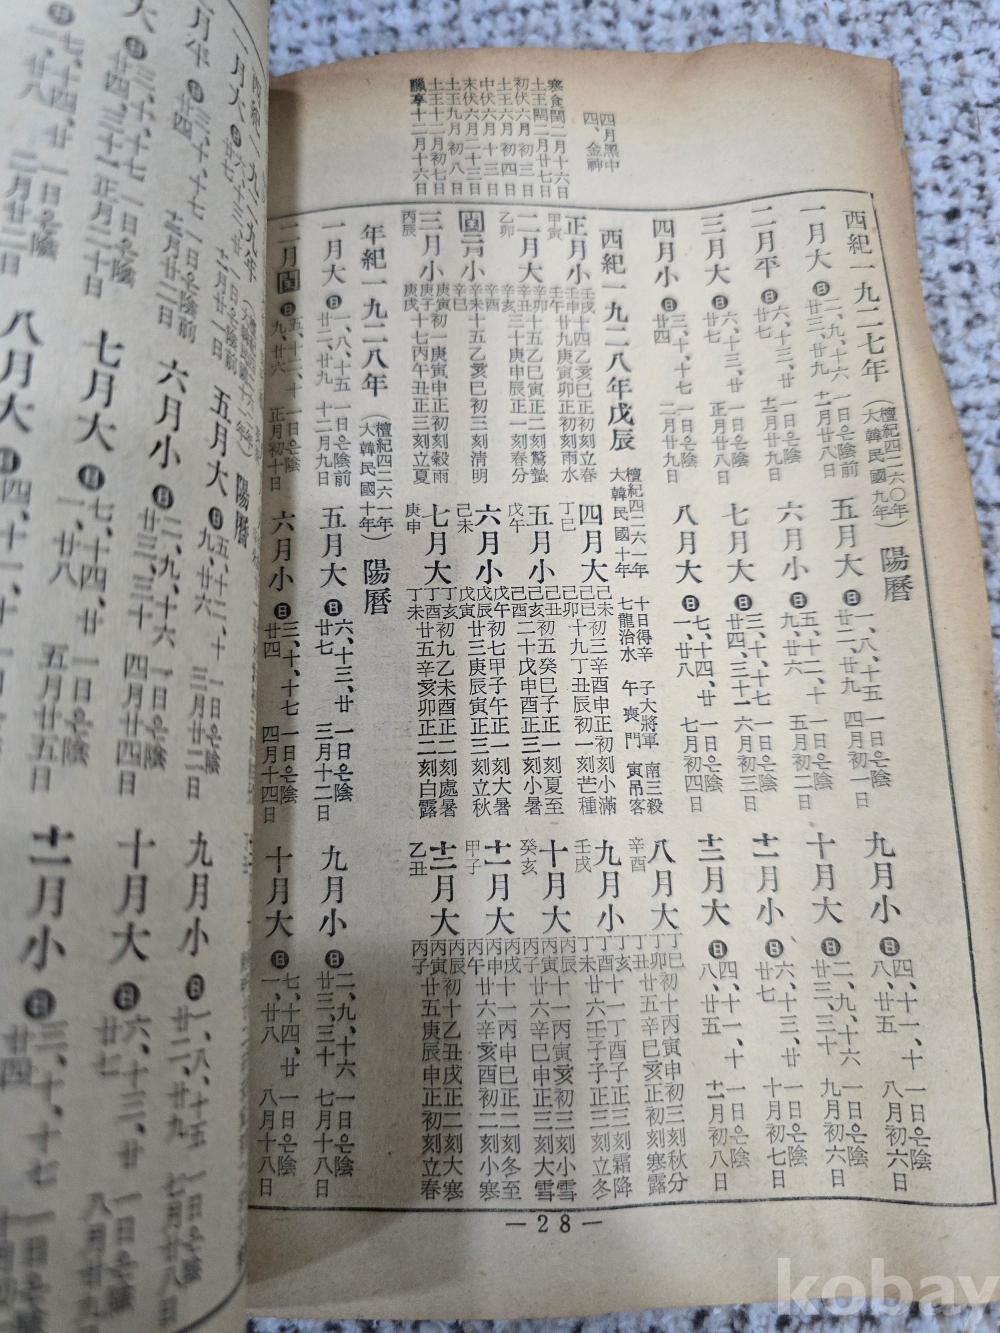 四月黑中
四、金神
寒食閏二月十六日
土王閏二月廿七日
初伏六月初三日
土王六月初四日
中伏六月十三日
末伏六月二十三日
土王九月初八日
土王十二月初七日
臘享十二月十六日
西紀一九二七年（檀紀四二六〇年 大韓民國九年）陽曆
一月大 日 二、九、十六 廿三、廿九 一日은陰前 十二月廿八日
五月大 日 一、八、十五 廿二、廿九 一日은陰 四月初一日
九月小 日 四、十一、十 八、廿五 一日은陰 八月初六日
二月平 日 六、十三、廿 廿七 一日은陰前 十二月廿九日
六月小 日 五、十二、十 九、廿六 一日은陰 五月初二日
十月大 日 二、九、十六 廿三、三十 一日은陰 九月初六日
三月大 日 六、十三、廿 廿七 一日은陰 正月廿八日
七月大 日 三、十、十七 廿四、三十一 一日은陰 六月初三日
十一月小 日 六、十三、廿 廿七 一日은陰 十月初七日
四月小 日 三、十、十七 廿四 一日은陰
八月大 日 七、十四、廿 一、廿八 一日은陰 七月初四日
十二月大 日 四、十一、十 八、廿五 一日은陰 十一月初八日
西紀一九二八年戊辰 檀紀四二六一年 大韓民國十年 十日得辛 七龍治水 子大將軍 午喪門 南三殺 寅吊客
正月小 甲寅 壬戌十四乙亥巳正初刻立春 壬申廿九庚寅卯正初刻雨水 壬午
四月大 丁巳 己未初三辛酉申正初刻小滿 己巳十九丁丑辰初一刻芒種 己卯
八月大 辛酉 丁巳初十丙寅申初三刻秋分 丁卯廿五辛巳亥正初刻寒露 丁丑
二月大 乙卯 辛卯十五乙巳寅正二刻驚蟄 三十庚申辰正一刻春分 辛亥
五月小 戊午 己丑初五癸巳子正一刻夏至 己亥二十戊申酉正三刻小暑 己酉
九月小 壬戌 丁亥十一丁酉子正三刻霜降 丁酉廿六壬子子正三刻立冬 丁未
閏二月小 辛酉十五乙亥巳初三刻淸明 辛未 辛巳
六月小 己未 戊午初七甲子午正一刻大暑 戊辰廿三庚辰寅正三刻立秋 戊寅
十月大 癸亥 丙辰十一丙寅亥初三刻小雪 丙寅廿六辛巳申正三刻大雪 丙子
三月小 丙辰 庚寅初一庚寅申正初刻穀雨 庚子十七丙午丑正三刻立夏 庚戌
七月大 庚申 丁亥初九乙未酉正二刻處暑 丁酉廿五辛亥卯正二刻白露 丁未
十一月大 甲子 丙戌十一丙申巳正二刻冬至 丙申廿六辛亥酉初二刻小寒 丙午
十二月大 乙丑 丙辰初十乙丑戌正二刻大寒 丙寅廿五庚辰申正初刻立春 丙子
年紀一九二八年（檀紀四二六一年 大韓民國十年）陽曆
一月大 日 一、八、十五 廿二、廿九 一日은陰前 十二月九日
五月大 日 六、十三、廿 廿七 一日은陰 三月十二日
九月小 日 二、九、十六 廿三、三十 一日은陰 七月十八日
二月閏 日 五、十二、十 九、廿六 一日은陰 正月初十日
六月小 日 三、十、十七 廿四 一日은陰 四月十四日
十月大 日 七、十四、廿 一、廿八 一日은陰 八月十八日
—28—
西紀一九二九年 陽曆
一月大 日 六、十三、廿 廿七 一日은陰前 十一月廿一日
五月大 日 五、十二、十 九、廿六 一日은陰 三月廿二日
九月小 日 一、八、十五 廿二、廿九 一日은陰 七月廿八日
二月平 日 三、十、十七 廿四 一日은陰前 十二月廿二日
六月小 日 二、九、十六 廿三、三十 一日은陰 四月廿四日
十月大 日 六、十三、廿 廿七 一日은陰 八月廿九日
大 日 三、十、十七 廿四、三十一 一日은陰 正月二十日
七月大 日 七、十四、廿 一、廿八 一日은陰 五月廿五日
十一月小 日 三、十、十七 廿四 一日은陰
日 七、十四、廿 一、廿八 一日은陰 二月廿二日
八月大 日 四、十一、十 一日은陰
kobay